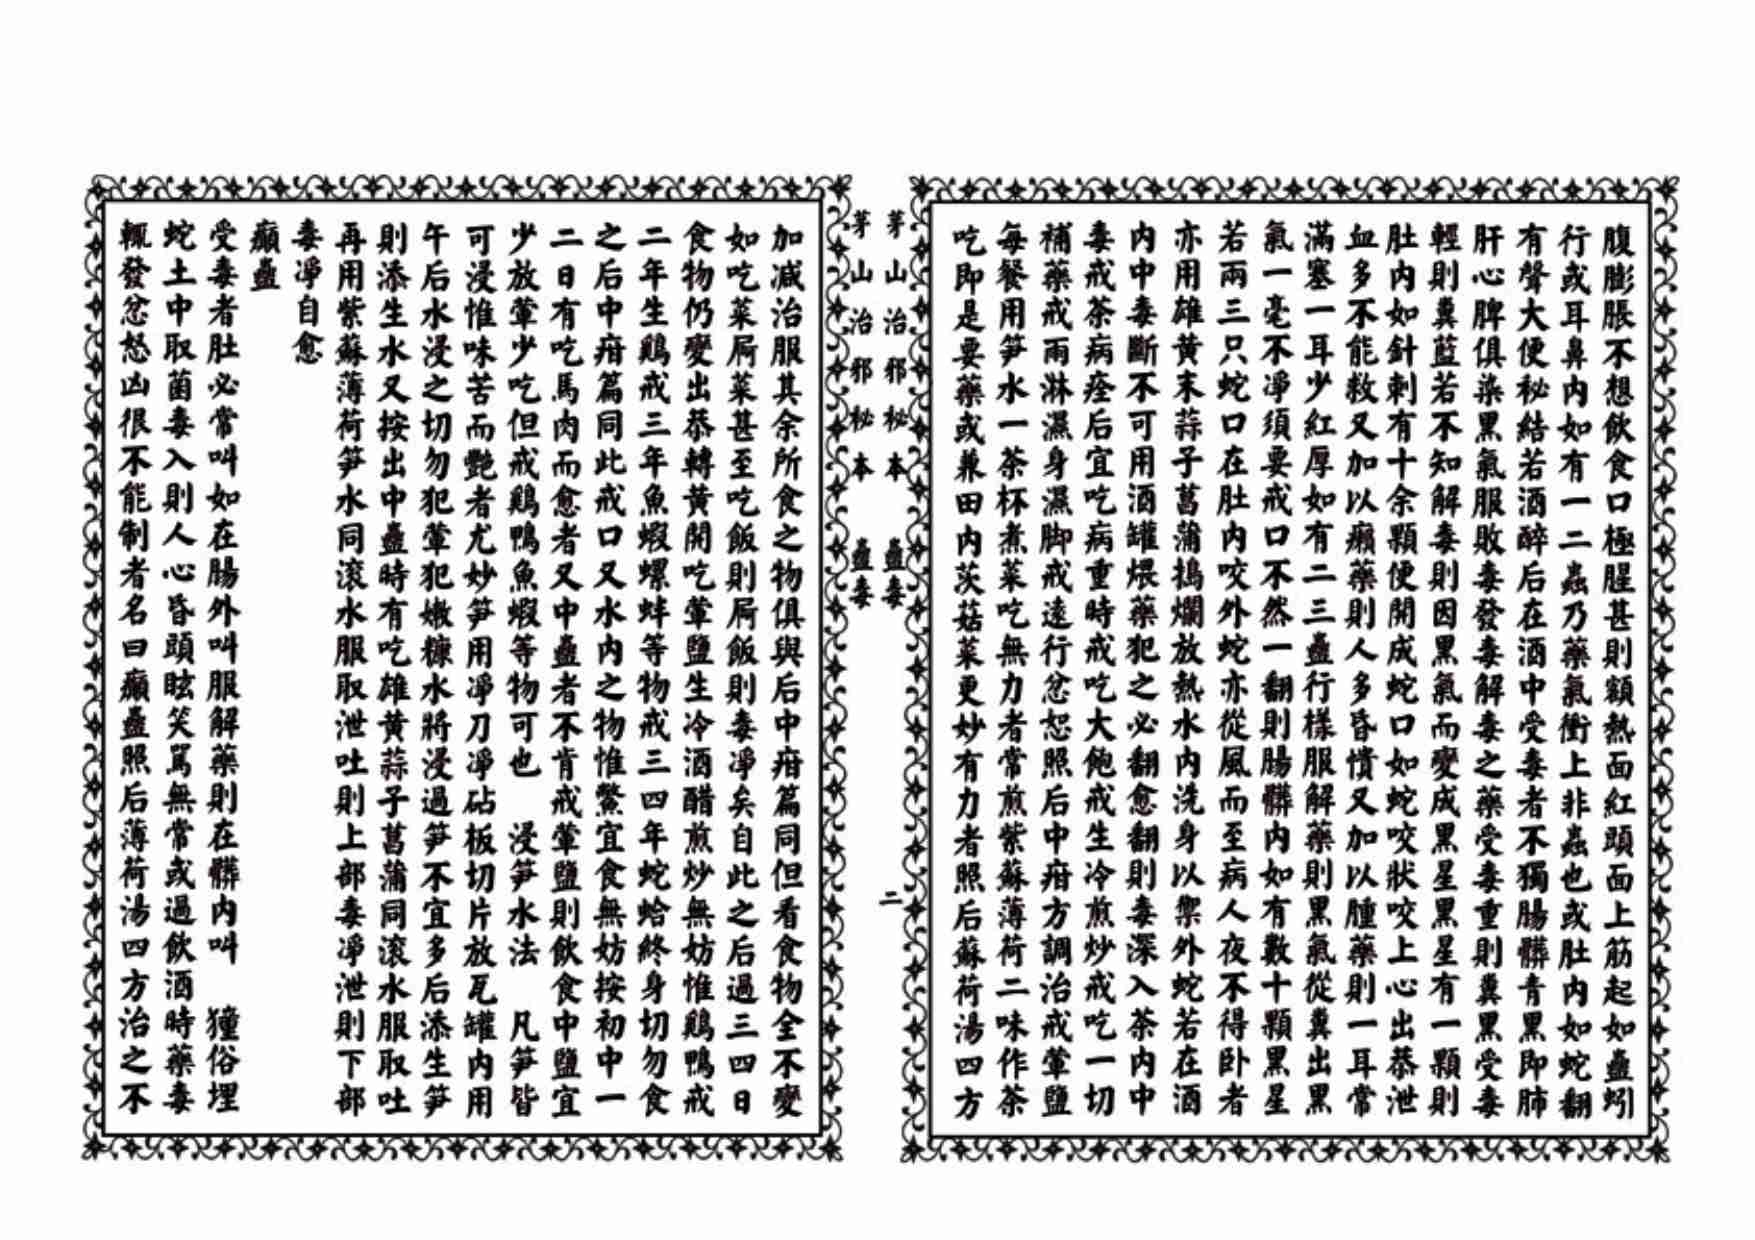 腹膨脹不想飲食口極腥甚則額熱面紅頭面上筋起如蠱蚓
行或耳鼻内如有一二蟲乃藥氣衝上非蟲也或肚内如蛇翻
有聲大便秘結若酒醉后在酒中受毒者不獨腸髒青黑即肺
肝心脾俱染黑氣服敗毒發毒解毒之藥受毒重則糞黑受毒
輕則糞藍若不知解毒則因黑氣而變成黑星黑星有一顆則
肚内如針刺有十余顆便開成蛇口如蛇咬狀咬上心出恭泄
血多不能救又加以癩藥則人多昏憒又加以腫藥則一耳常
滿塞一耳少紅厚如有二三蠱行樣服解藥則黑氣從糞出黑
氣一毫不凈須要戒口不然一翻則腸髒内如有數十顆黑星
若兩三只蛇口在肚内咬外蛇亦從風而至病人夜不得卧者
亦用雄黄末蒜子菖蒲搗爛放熱水内洗身以禦外蛇若在酒
内中毒斷不可用酒罐煨藥犯之必翻愈翻則毒深入茶内中
毒戒茶病痊后宜吃病重時戒吃大飽戒生冷煎炒戒吃一切
補藥戒雨淋濕身濕脚戒遠行忿恕照后中疳方調治戒葷鹽
每餐用笋水一茶杯煮菜吃無力者常煎紫蘇薄荷二味作茶
吃即是要藥或兼田内茨菇菜更妙有力者照后蘇荷湯四方
茅山治邪秘本　蠱毒　二
茅山治邪秘本　蠱毒
加减治服其余所食之物俱與后中疳篇同但看食物全不變
如吃菜屙菜甚至吃飯則屙飯則毒凈矣自此之后過三四日
食物仍變出恭轉黄開吃葷鹽生冷酒醋煎炒無妨惟鷄鴨戒
二年生鷄戒三年魚蝦螺蚌等物戒三四年蛇蛤終身切勿食
之后中疳篇同此戒口又水内之物惟鱉宜食無妨按初中一
二日有吃馬肉而愈者又中蠱者不肯戒葷鹽則飲食中鹽宜
少放葷少吃但戒鷄鴨魚蝦等物可也　浸笋水法　凡笋皆
可浸惟味苦而艷者尤妙笋用凈刀凈砧板切片放瓦罐内用
午后水浸之切勿犯葷犯嫩糠水將浸過笋不宜多后添生笋
則添生水又按出中蠱時有吃雄黄蒜子菖蒲同滚水服取吐
再用紫蘇薄荷笋水同滚水服取泄吐則上部毒凈泄則下部
毒凈自愈
癲蠱
受毒者肚必常叫如在腸外叫服解藥則在髒内叫　獞俗埋
蛇土中取菌毒入則人心昏頭眩笑罵無常或過飲酒時藥毒
輒發忿怒凶很不能制者名曰癲蠱照后薄荷湯四方治之不